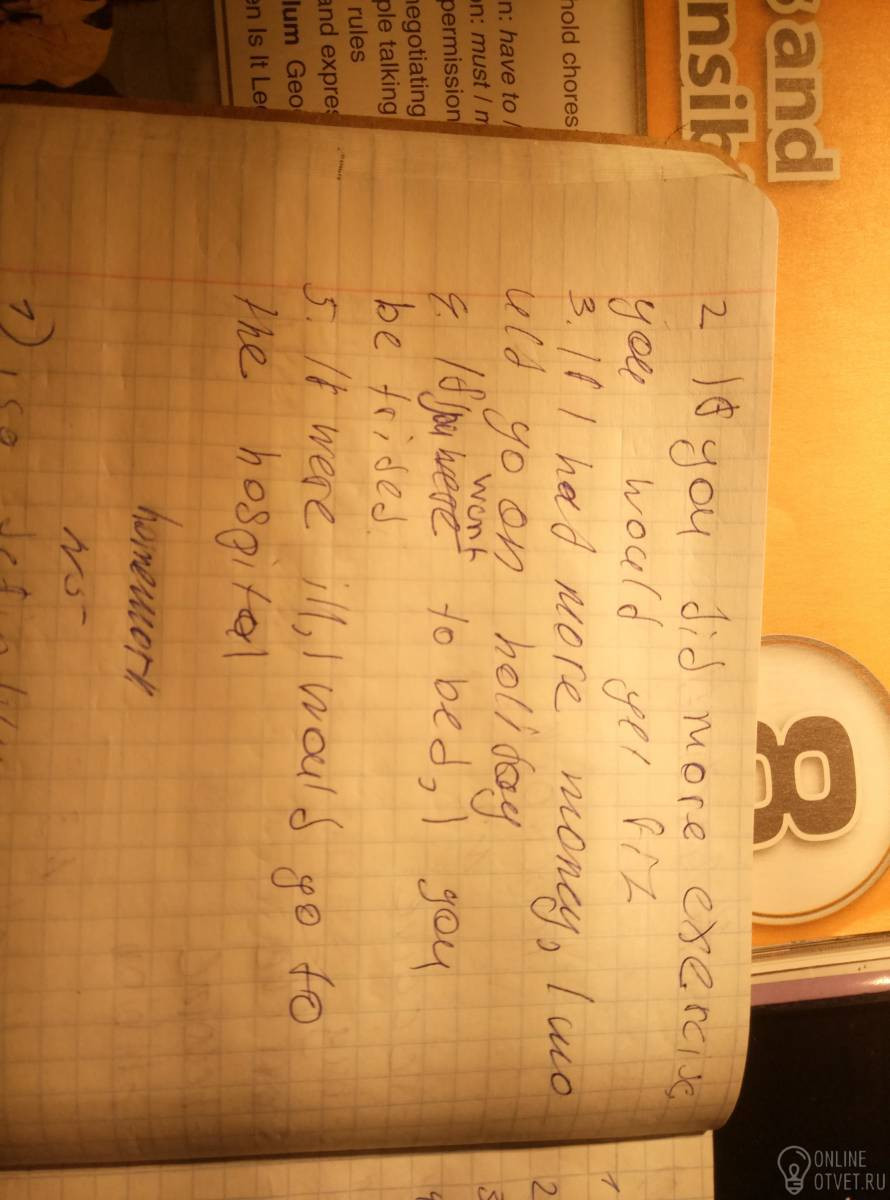 hold chores
n: have to /
on: must / m
permission
negotiating
ple talking
rules
and expres
lum Geo
en Is It Le
s and
nsib
8
2. If you did more exercise,
you would get fit
3. If I had more money, I wo
uld go on holiday
4. If you were want to bed, I you
be trided
5. If were ill, I would go to
the hospital
homework
N5
1)
1
2
3
ONLINE
OTVET.RU